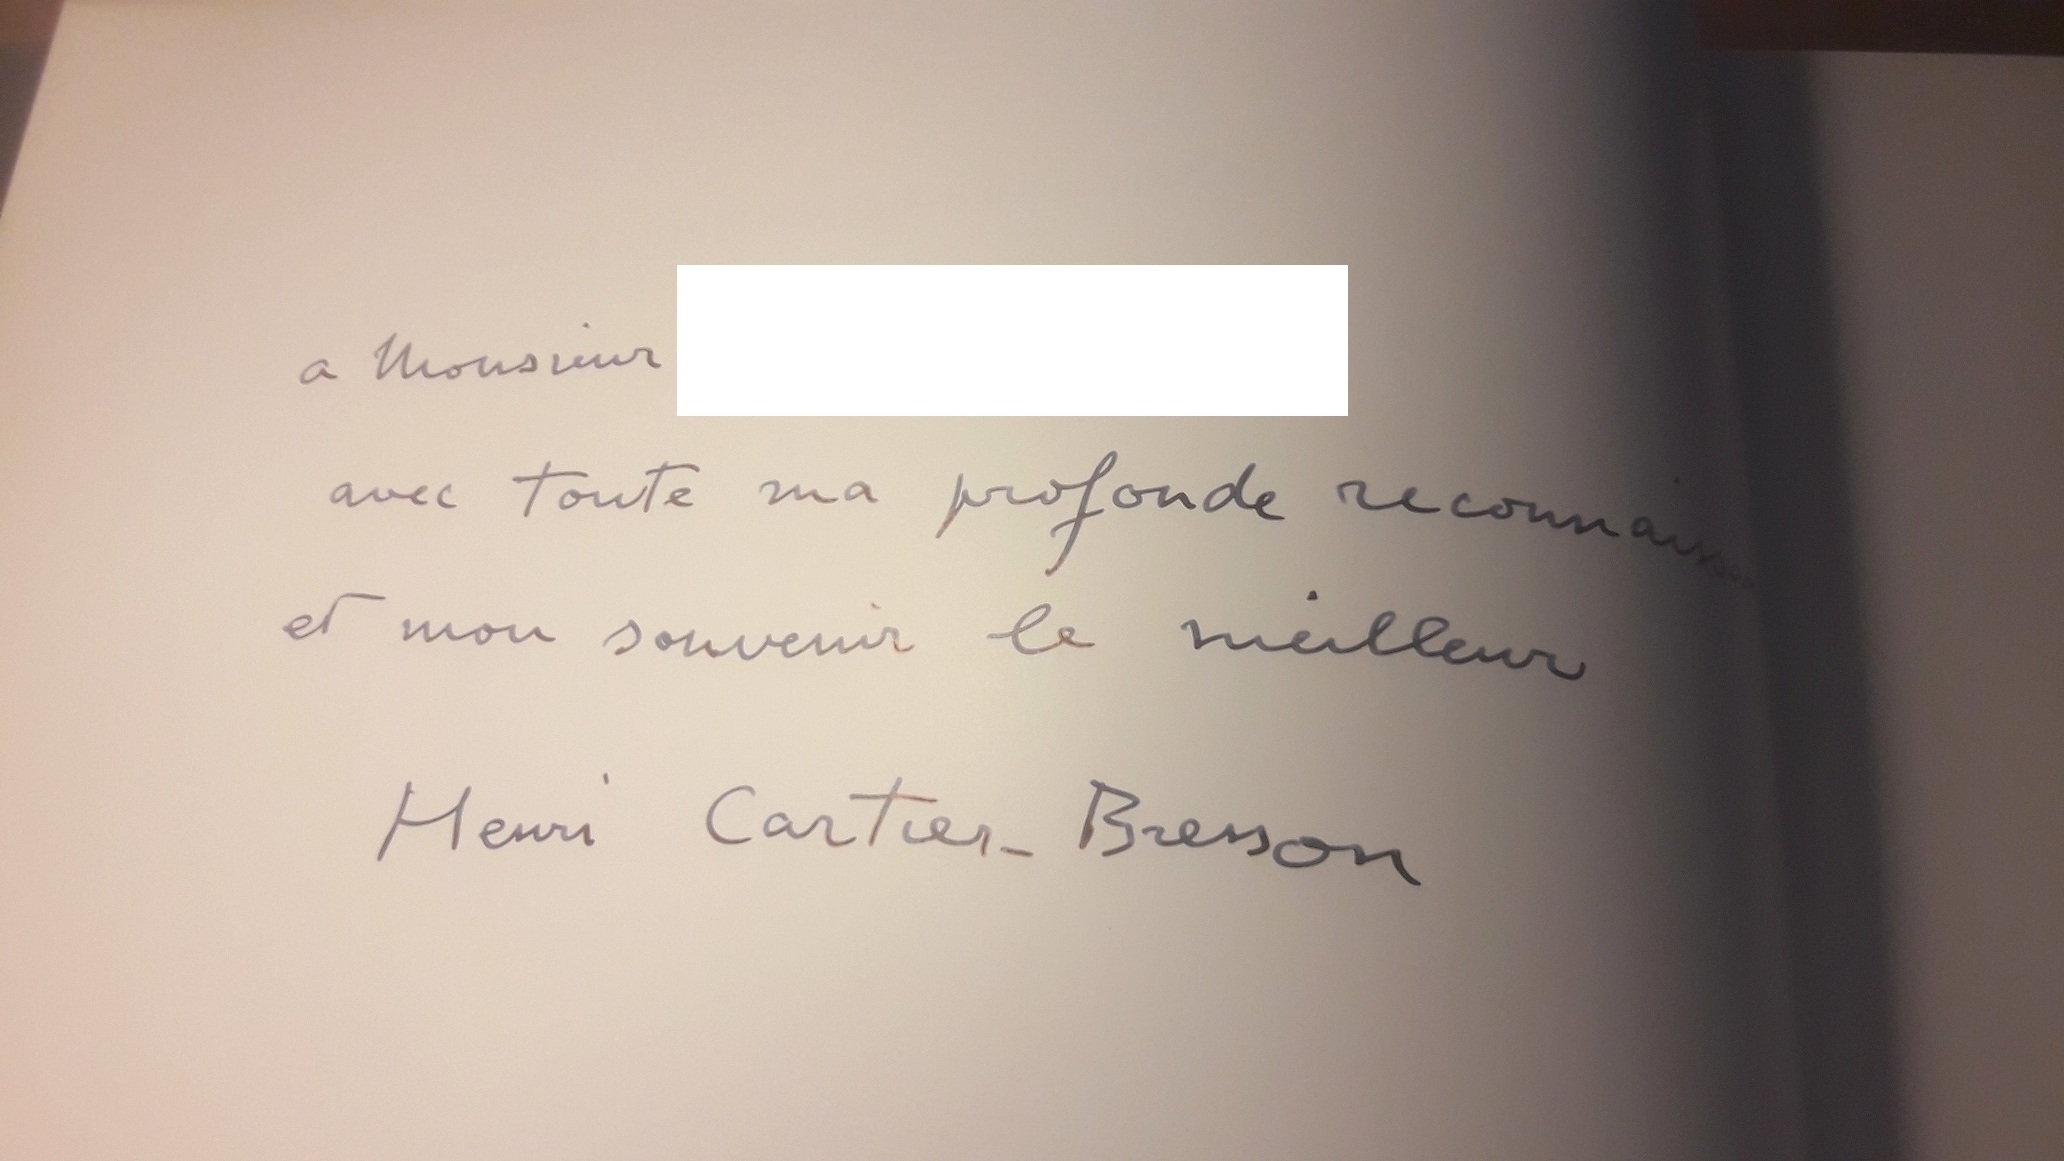 a Monsieur
avec toute ma profonde reconnaissance
et mon souvenir le meilleur
Henri Cartier-Bresson